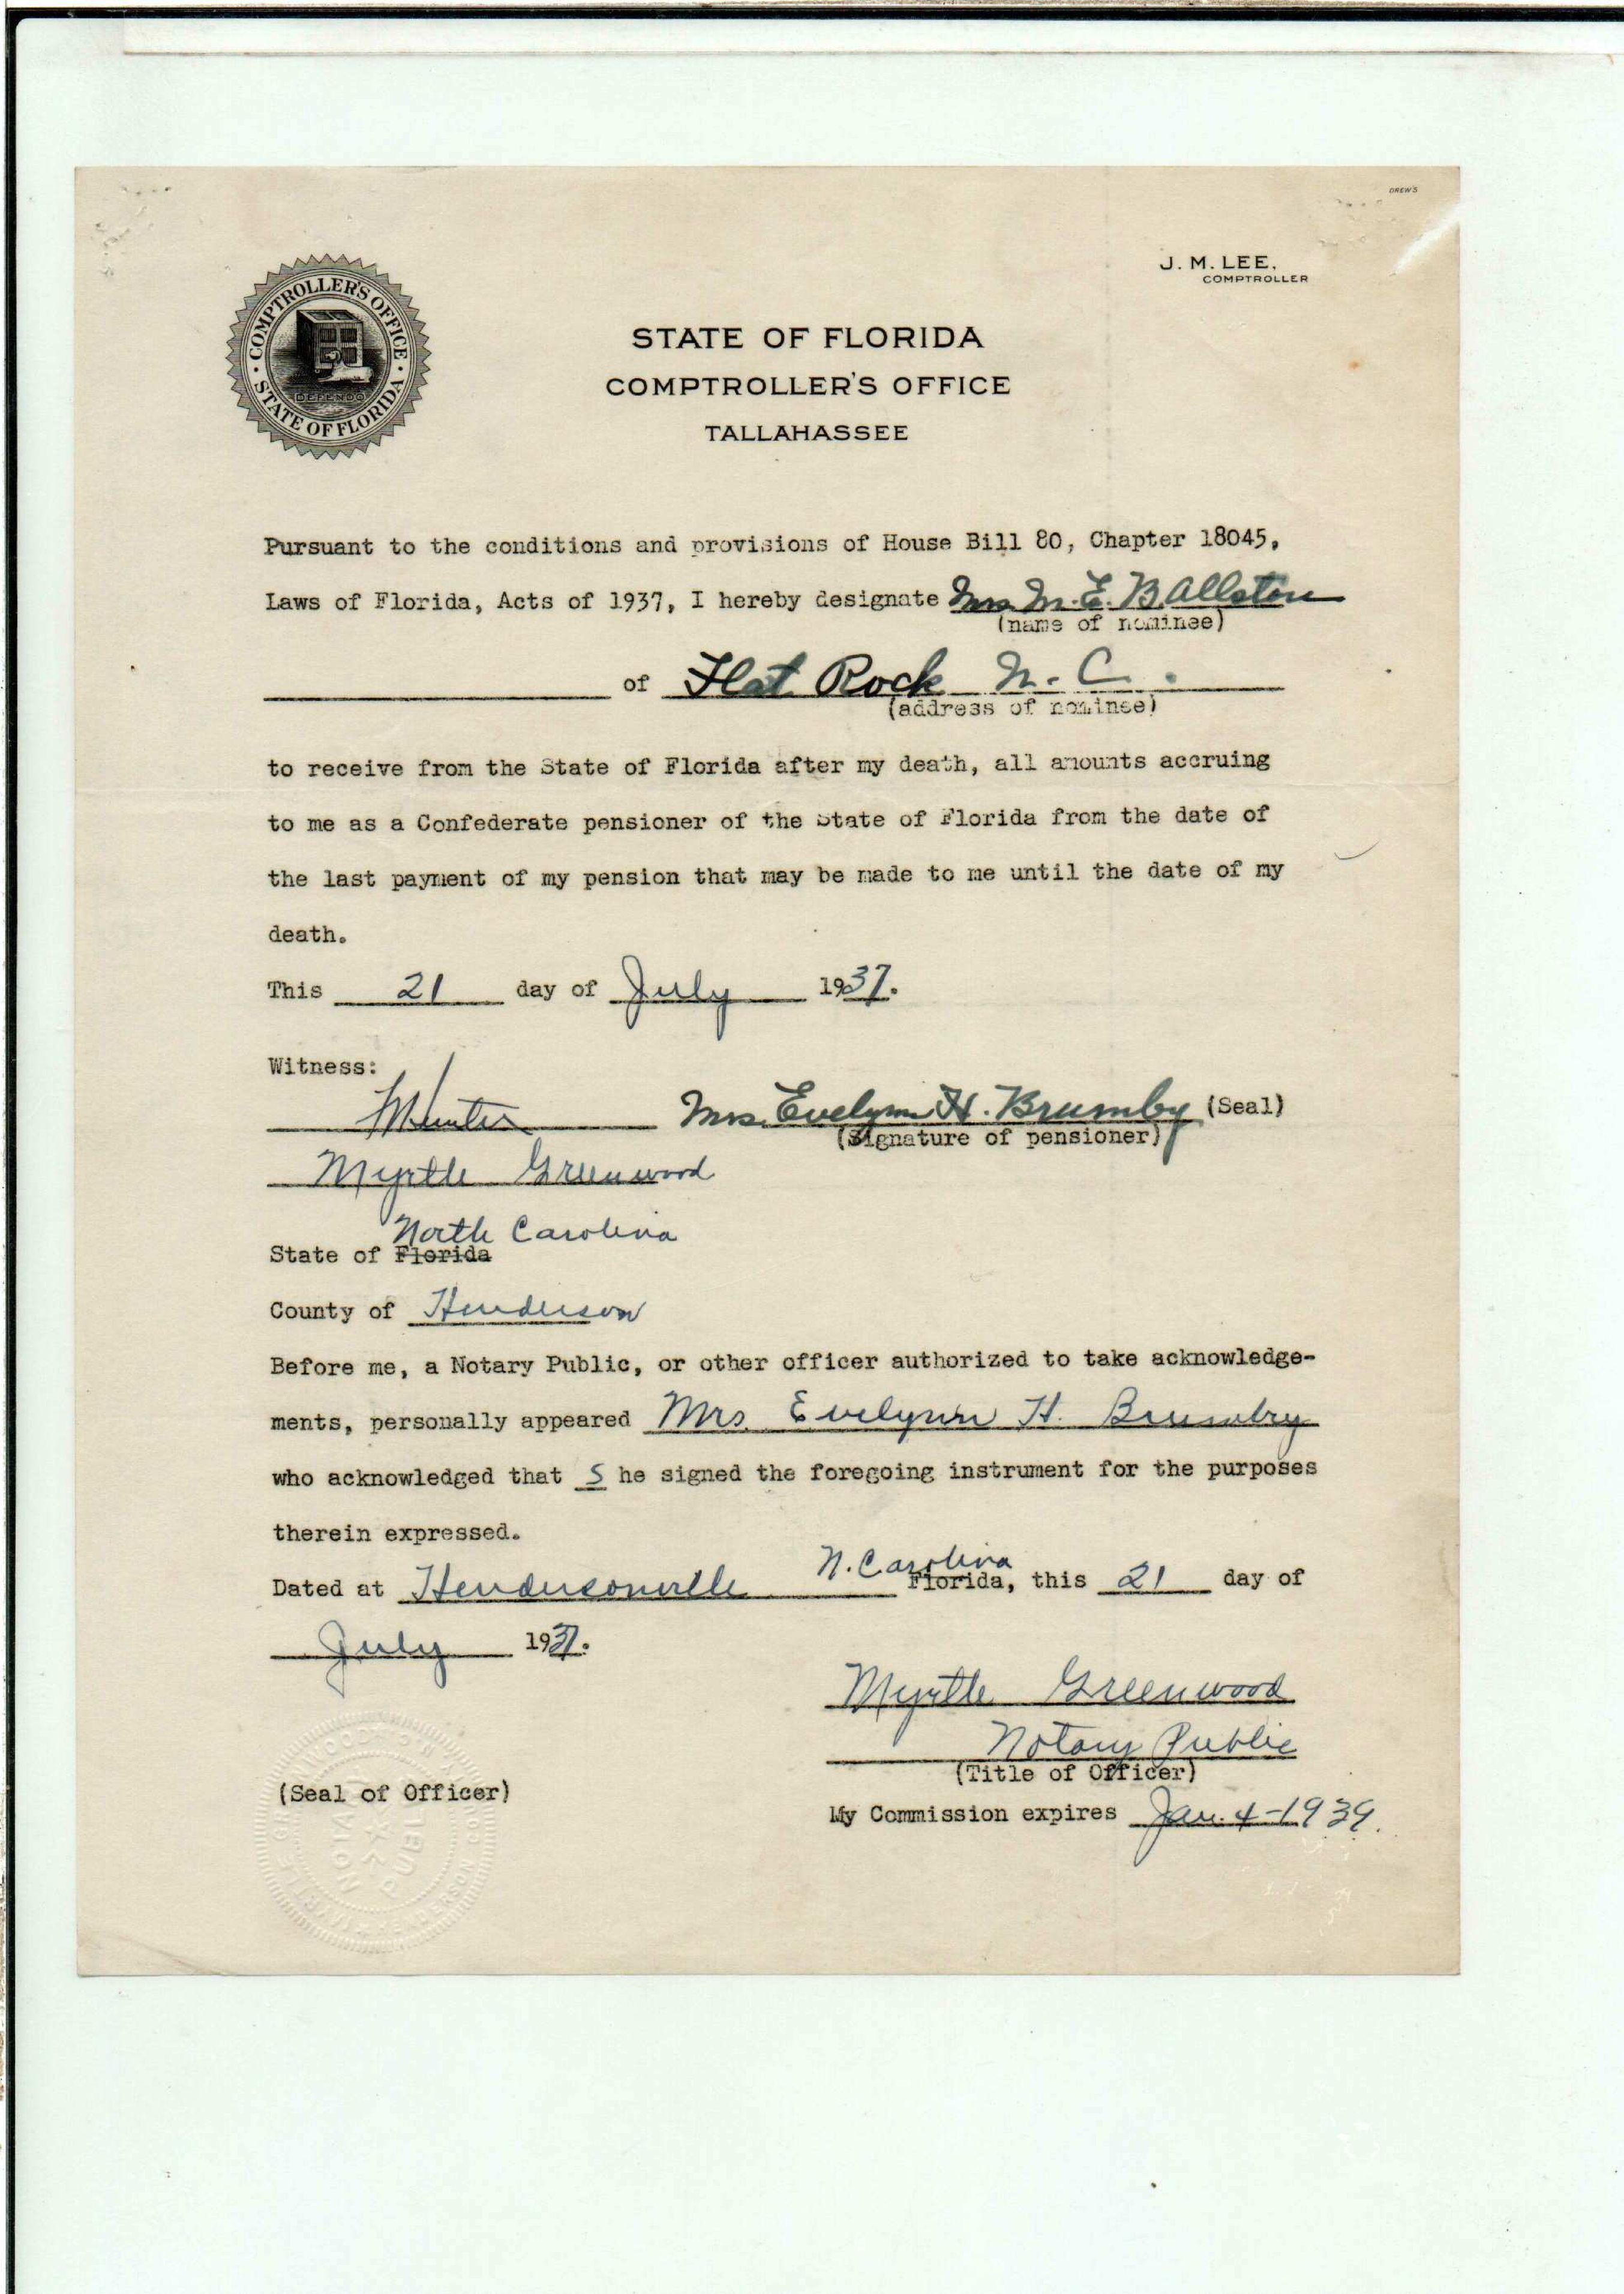 DREW'S
J. M. LEE,
COMPTROLLER
COMPTROLLER'S OFFICE
DEFENDO
STATE OF FLORIDA
STATE OF FLORIDA
COMPTROLLER'S OFFICE
TALLAHASSEE
Pursuant to the conditions and provisions of House Bill 80, Chapter 18045,
Laws of Florida, Acts of 1937, I hereby designate Mrs. M. E. B. Allston
(name of nominee)
of Flat Rock N. C.
(address of nominee)
to receive from the State of Florida after my death, all amounts accruing
to me as a Confederate pensioner of the State of Florida from the date of
the last payment of my pension that may be made to me until the date of my
death.
This 21 day of July 1937.
Witness:
Mrs. Evelynn H. Brumby (Seal)
(Signature of pensioner)
Myrtle Greenwood
North Carolina
State of Florida
County of Henderson
Before me, a Notary Public, or other officer authorized to take acknowledge-
ments, personally appeared Mrs Evelynn H. Brumby
who acknowledged that S he signed the foregoing instrument for the purposes
therein expressed.
Dated at Hendersonville N. Carolina Florida, this 21 day of
July 1937.
Myrtle Greenwood
Notary Public
(Title of Officer)
(Seal of Officer)
My Commission expires Jan. 4-1939.